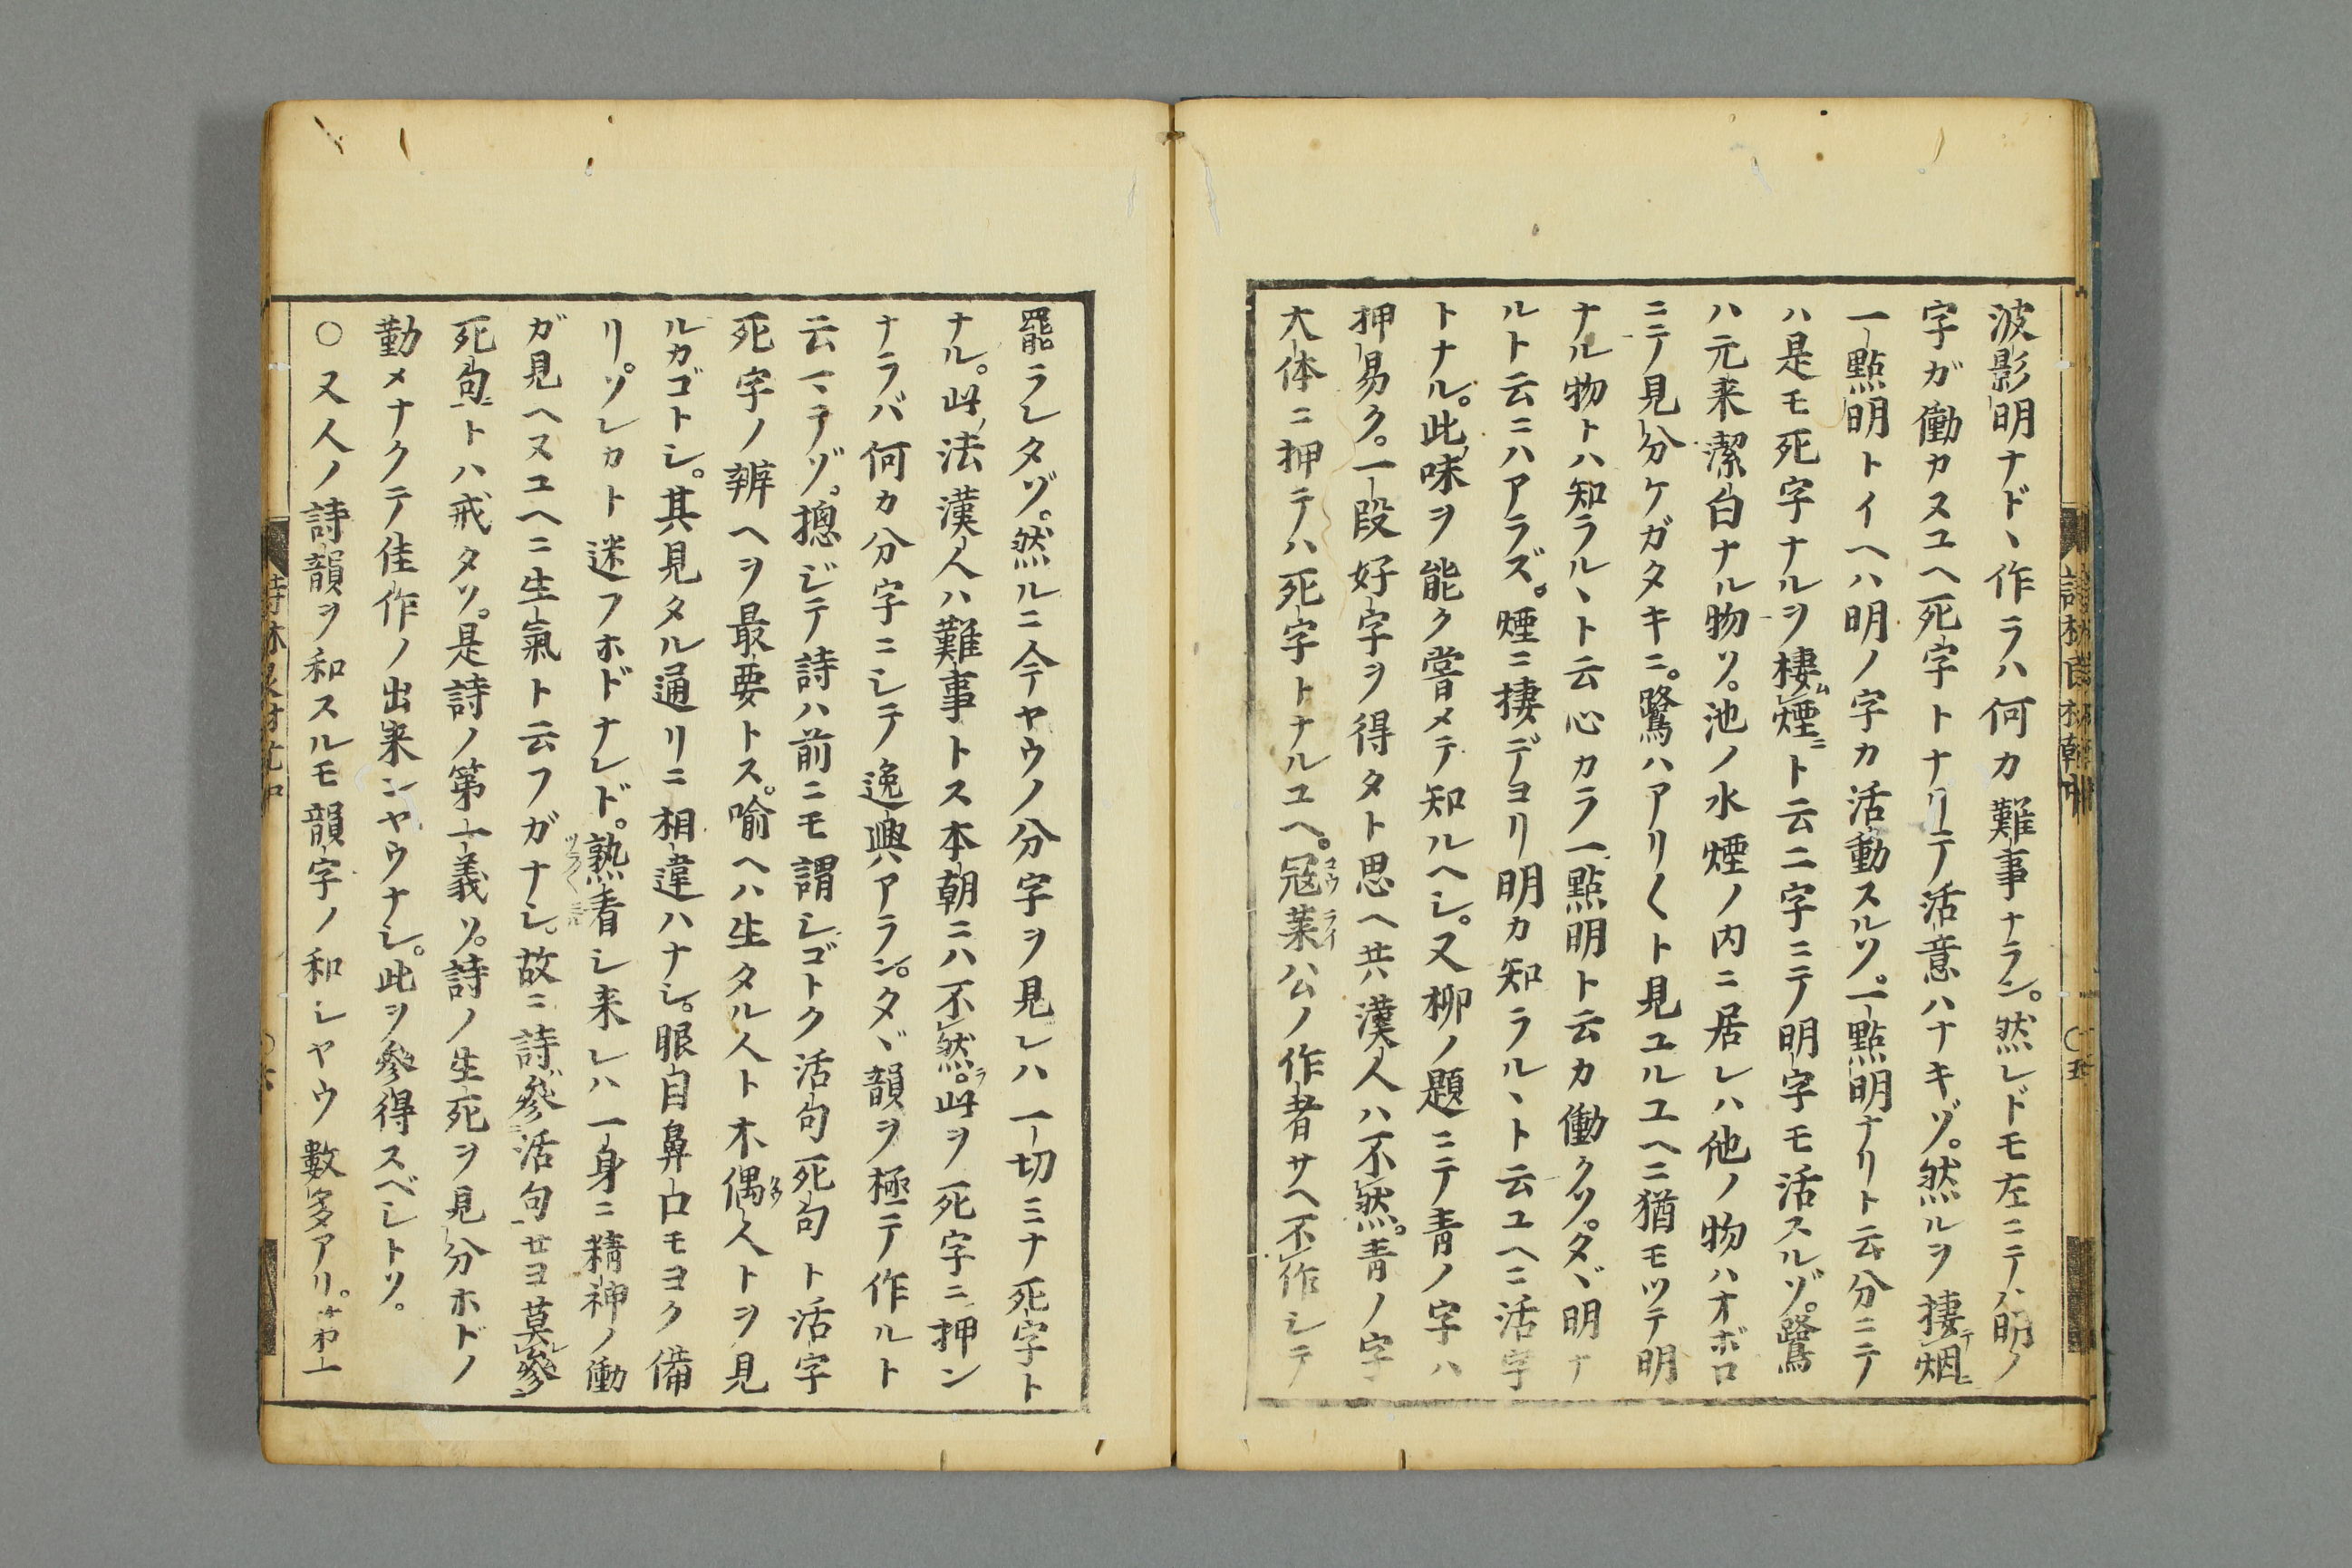 波影明ナド、作ラハ何カ難事ナラン。然レドモ左ニテハ明ノ
字ガ働カヌユヘ死字トナリテ活意ハナキゾ。然ルヲ棲烟
一點明トイヘハ明ノ字カ活動スルソ。一點明ナリト云分ニテ
ハ是モ死字ナルヲ棲煙ニト云二字ニテ明字モ活スルゾ。鷺
ハ元来潔白ナル物ソ。池ノ水煙ノ内ニ居レハ他ノ物ハオボロ
ニテ見分ケガタキニ。鷺ハアリ〱ト見ユルユヘニ猶モツテ明
ナル物トハ知ラル、ト云心カラ一點明ト云カ働クソ。タヾ明ナ
ルト云ニハアラズ。煙ニ棲デヨリ明カ知ラル、ト云ユヘニ活字
トナル。此味ヲ能ク嘗メテ知ルヘシ。又柳ノ題ニテ青ノ字ハ
押易ク。一段好字ヲ得タト思ヘ共漢人ハ不然。青ノ字
大体ニ押テハ死字トナルユヘ。冦莱公ノ作者サヘ不作シテ
罷ラレタゾ。然ルニ今ヤウノ分字ヲ見レハ一切ミナ死字ト
ナル。此ノ法漢人ハ難事トス本朝ニハ不然。此ヲ死字ニ押ン
ナラバ何カ分字ニシテ逸興アラン。タヾ韻ヲ極テ作ルト
云マテゾ。摠ジテ詩ハ前ニモ謂シゴトク活句死句ト活字
死字ノ辨ヘヲ最要トス。喻ヘハ生タル人ト木偶人トヲ見
ルカゴトシ。其見タル通リニ相違ハナシ。眼自鼻口モヨク備
リ。ソレカト迷フホドナレド。熟看シ来レハ一身ニ精神ノ働
ガ見ヘヌユヘニ生氣ト云フガナシ。故ニ詩參活句セヨ莫參
死句トハ戒タソ。是詩ノ第一義ソ。詩ノ生死ヲ見分ホドノ
勤メナクテ佳作ノ出来ンヤウナシ。此ヲ參得スベシトソ。
〇又人ノ詩韻ヲ和スルモ韻字ノ和シヤウ數多アリ。㐧一